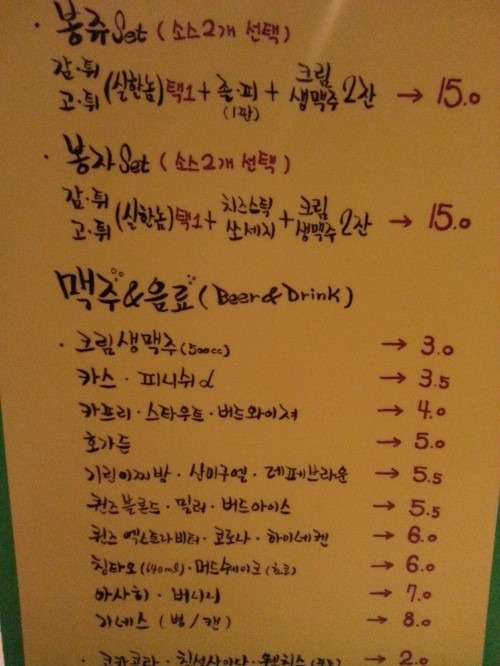 · 봉쥬 Set ( 소스 2개 선택 )
감·튀
고·튀 (실한놈) 택1 + 졸·피 (1판) + 크림 생맥주 2잔 → 15.0
· 봉자 Set ( 소스 2개 선택 )
감·튀
고·튀 (실한놈) 택1 + 치즈스틱 쏘세지 + 크림 생맥주 2잔 → 15.0
맥주 & 음료 ( Beer & Drink )
· 크림 생맥주 (500cc) → 3.0
카스 · 피니쉬 d → 3.5
카프리 · 스타우트 · 버드와이져 → 4.0
호가든 → 5.0
기린이찌방 · 산미구엘 · 레페브라운 → 5.5
퀸즈블론드 · 밀러 · 버드아이스 → 5.5
퀸즈 엑스트라비터 · 코로나 · 하이네켄 → 6.0
칭타오 (640ml) · 머드쉐이크 → 6.0
아사히 · 버니니 → 7.0
기네스 ( 병 / 캔 ) → 8.0
· 코카콜라 · 칠성사이다 · 웰치스 → 2.0